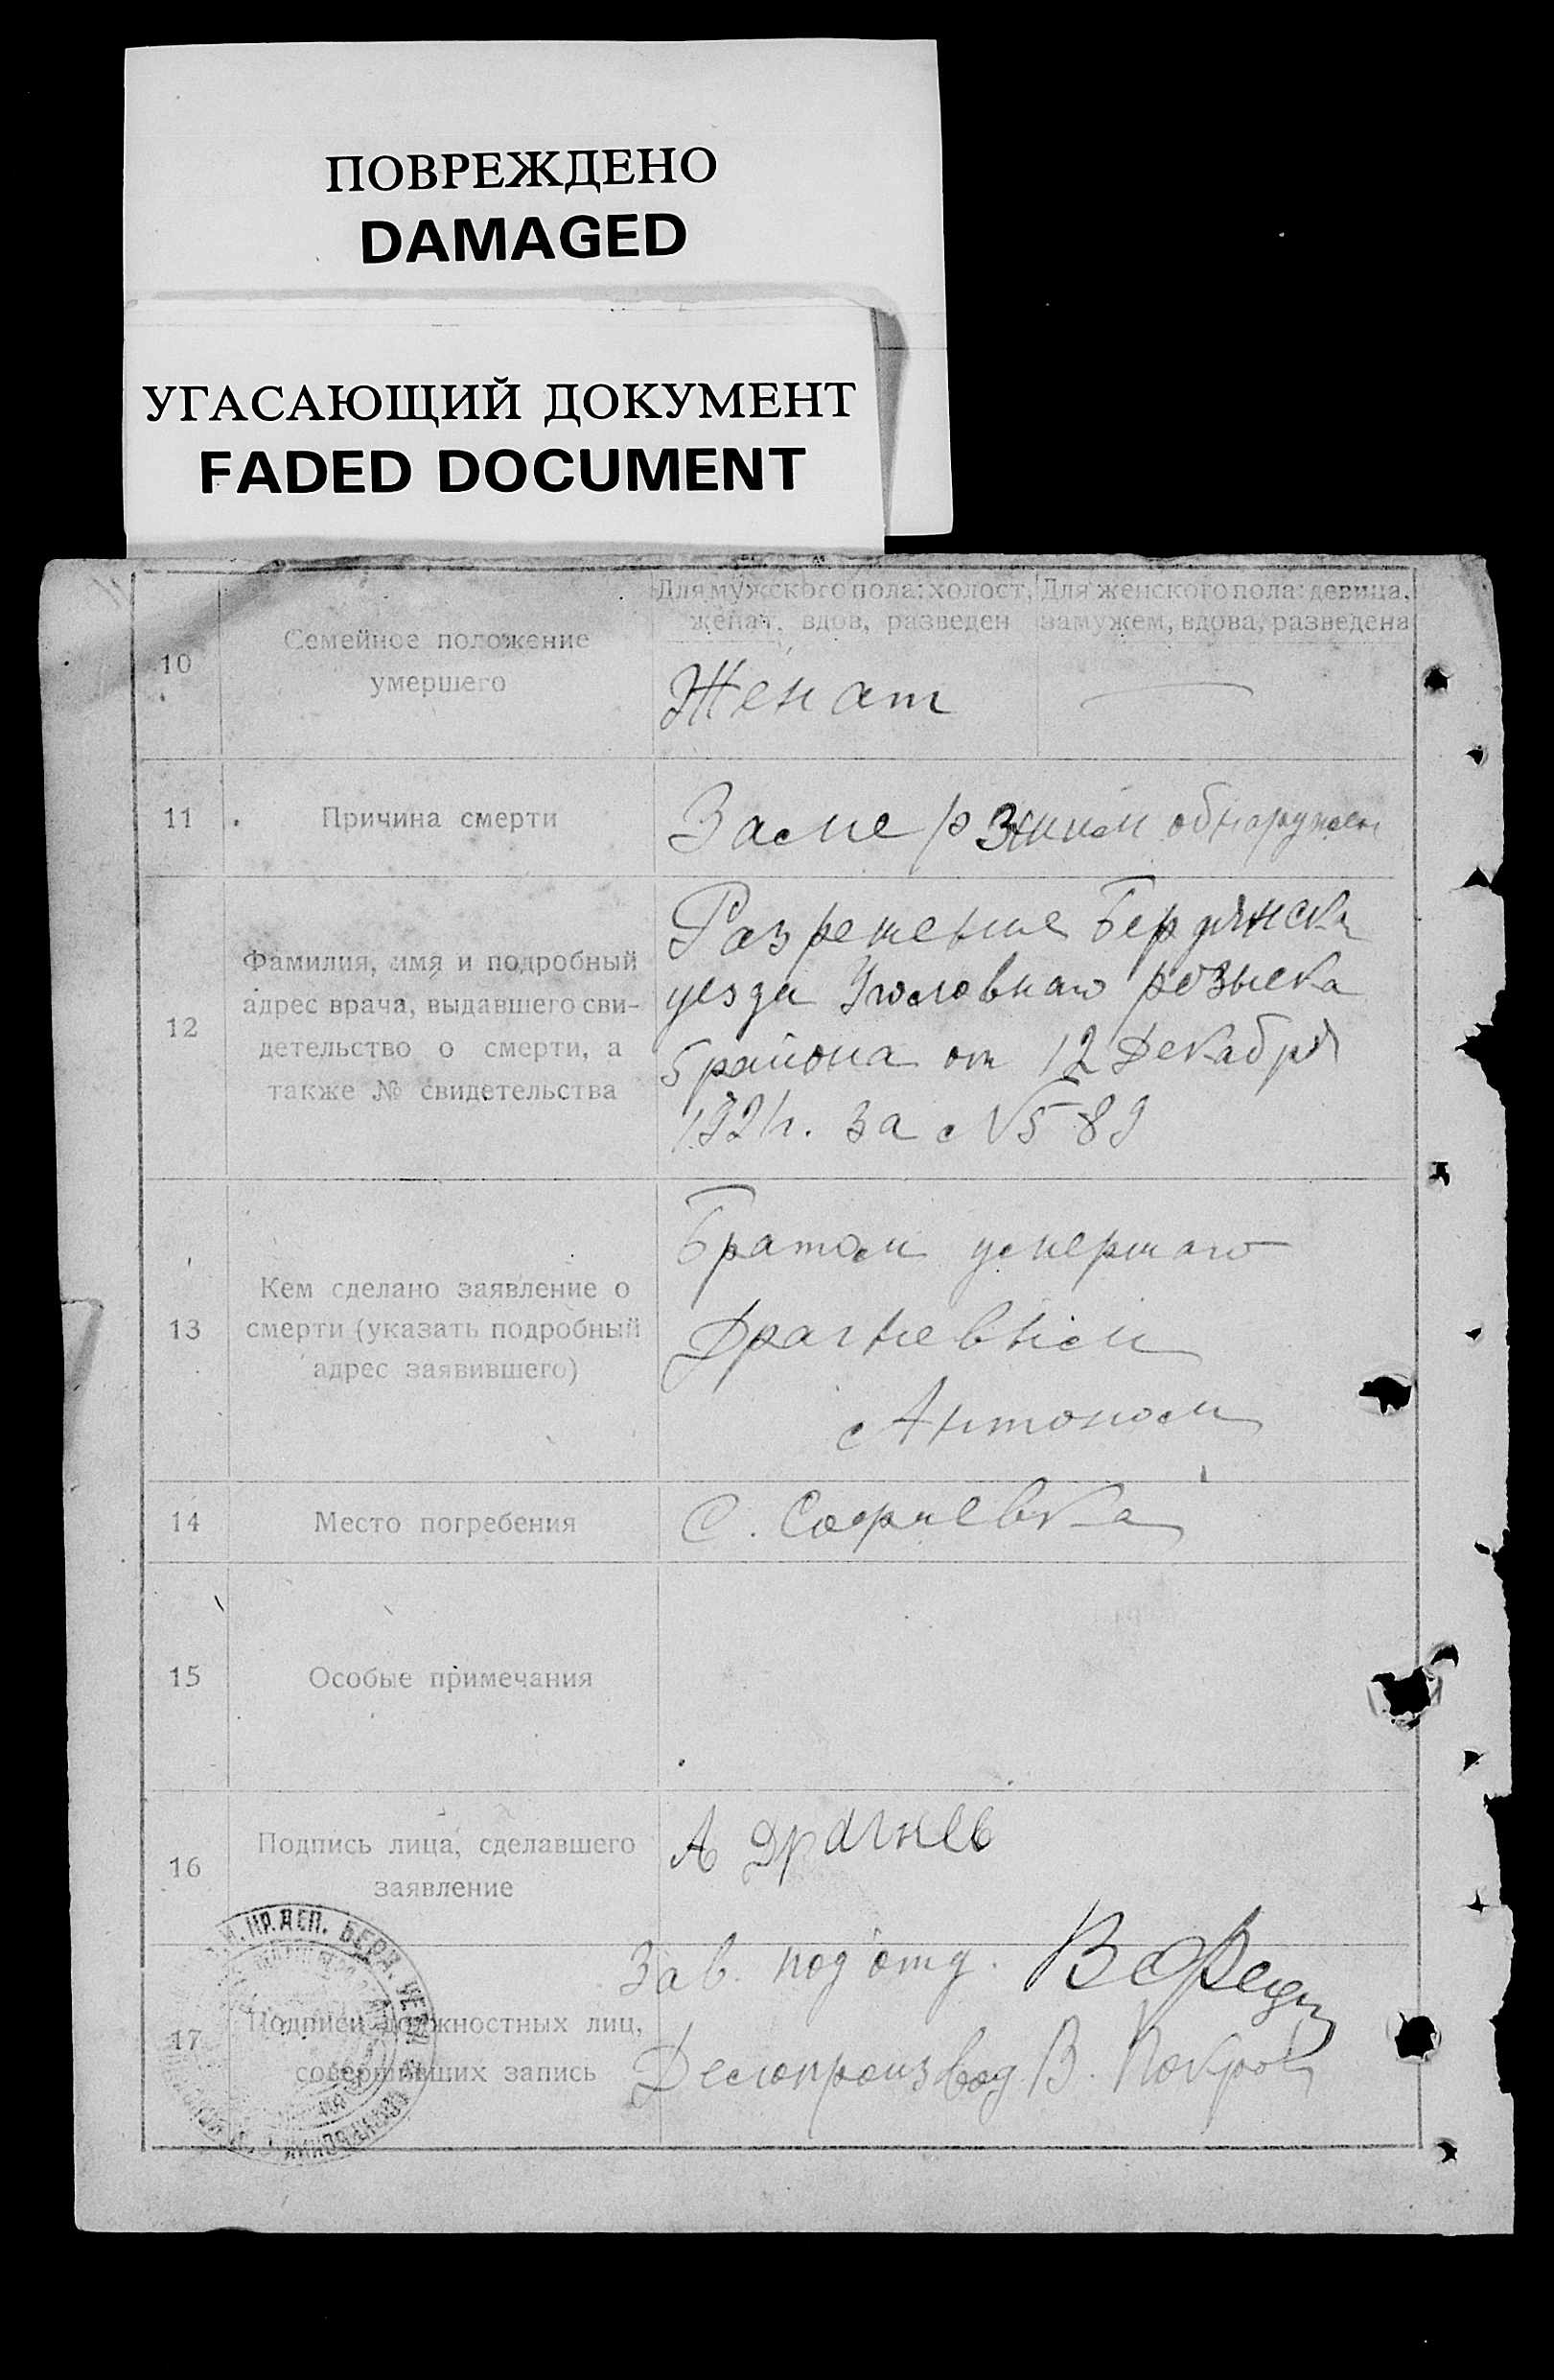 ПОВРЕЖДЕНО
DAMAGED
УГАСАЮЩИЙ ДОКУМЕНТ
FADED DOCUMENT
10
Семейное положение
умершего
Для мужского пола: холост,
женат, вдов, разведен
Для женского пола: девица,
замужем, вдова, разведена
Женат
—
11
Причина смерти
Замерзшим обнаружен
12
Фамилия, имя и подробный
адрес врача, выдавшего сви-
детельство о смерти, а
также № свидетельства
Разрешение Бердянск
уезда Уголовнаго розыска
5 района от 12 Декабря
1921г. за № 589
13
Кем сделано заявление о
смерти (указать подробный
адрес заявившего)
Братом умершаго
Драгневым
Антоном
14
Место погребения
С. Софиевка
15
Особые примечания
16
Подпись лица, сделавшего
заявление
А Драгнев
17
Подписи должностных лиц,
совершивших запись
Зав. подотд.
Делопроизвод В. Покров